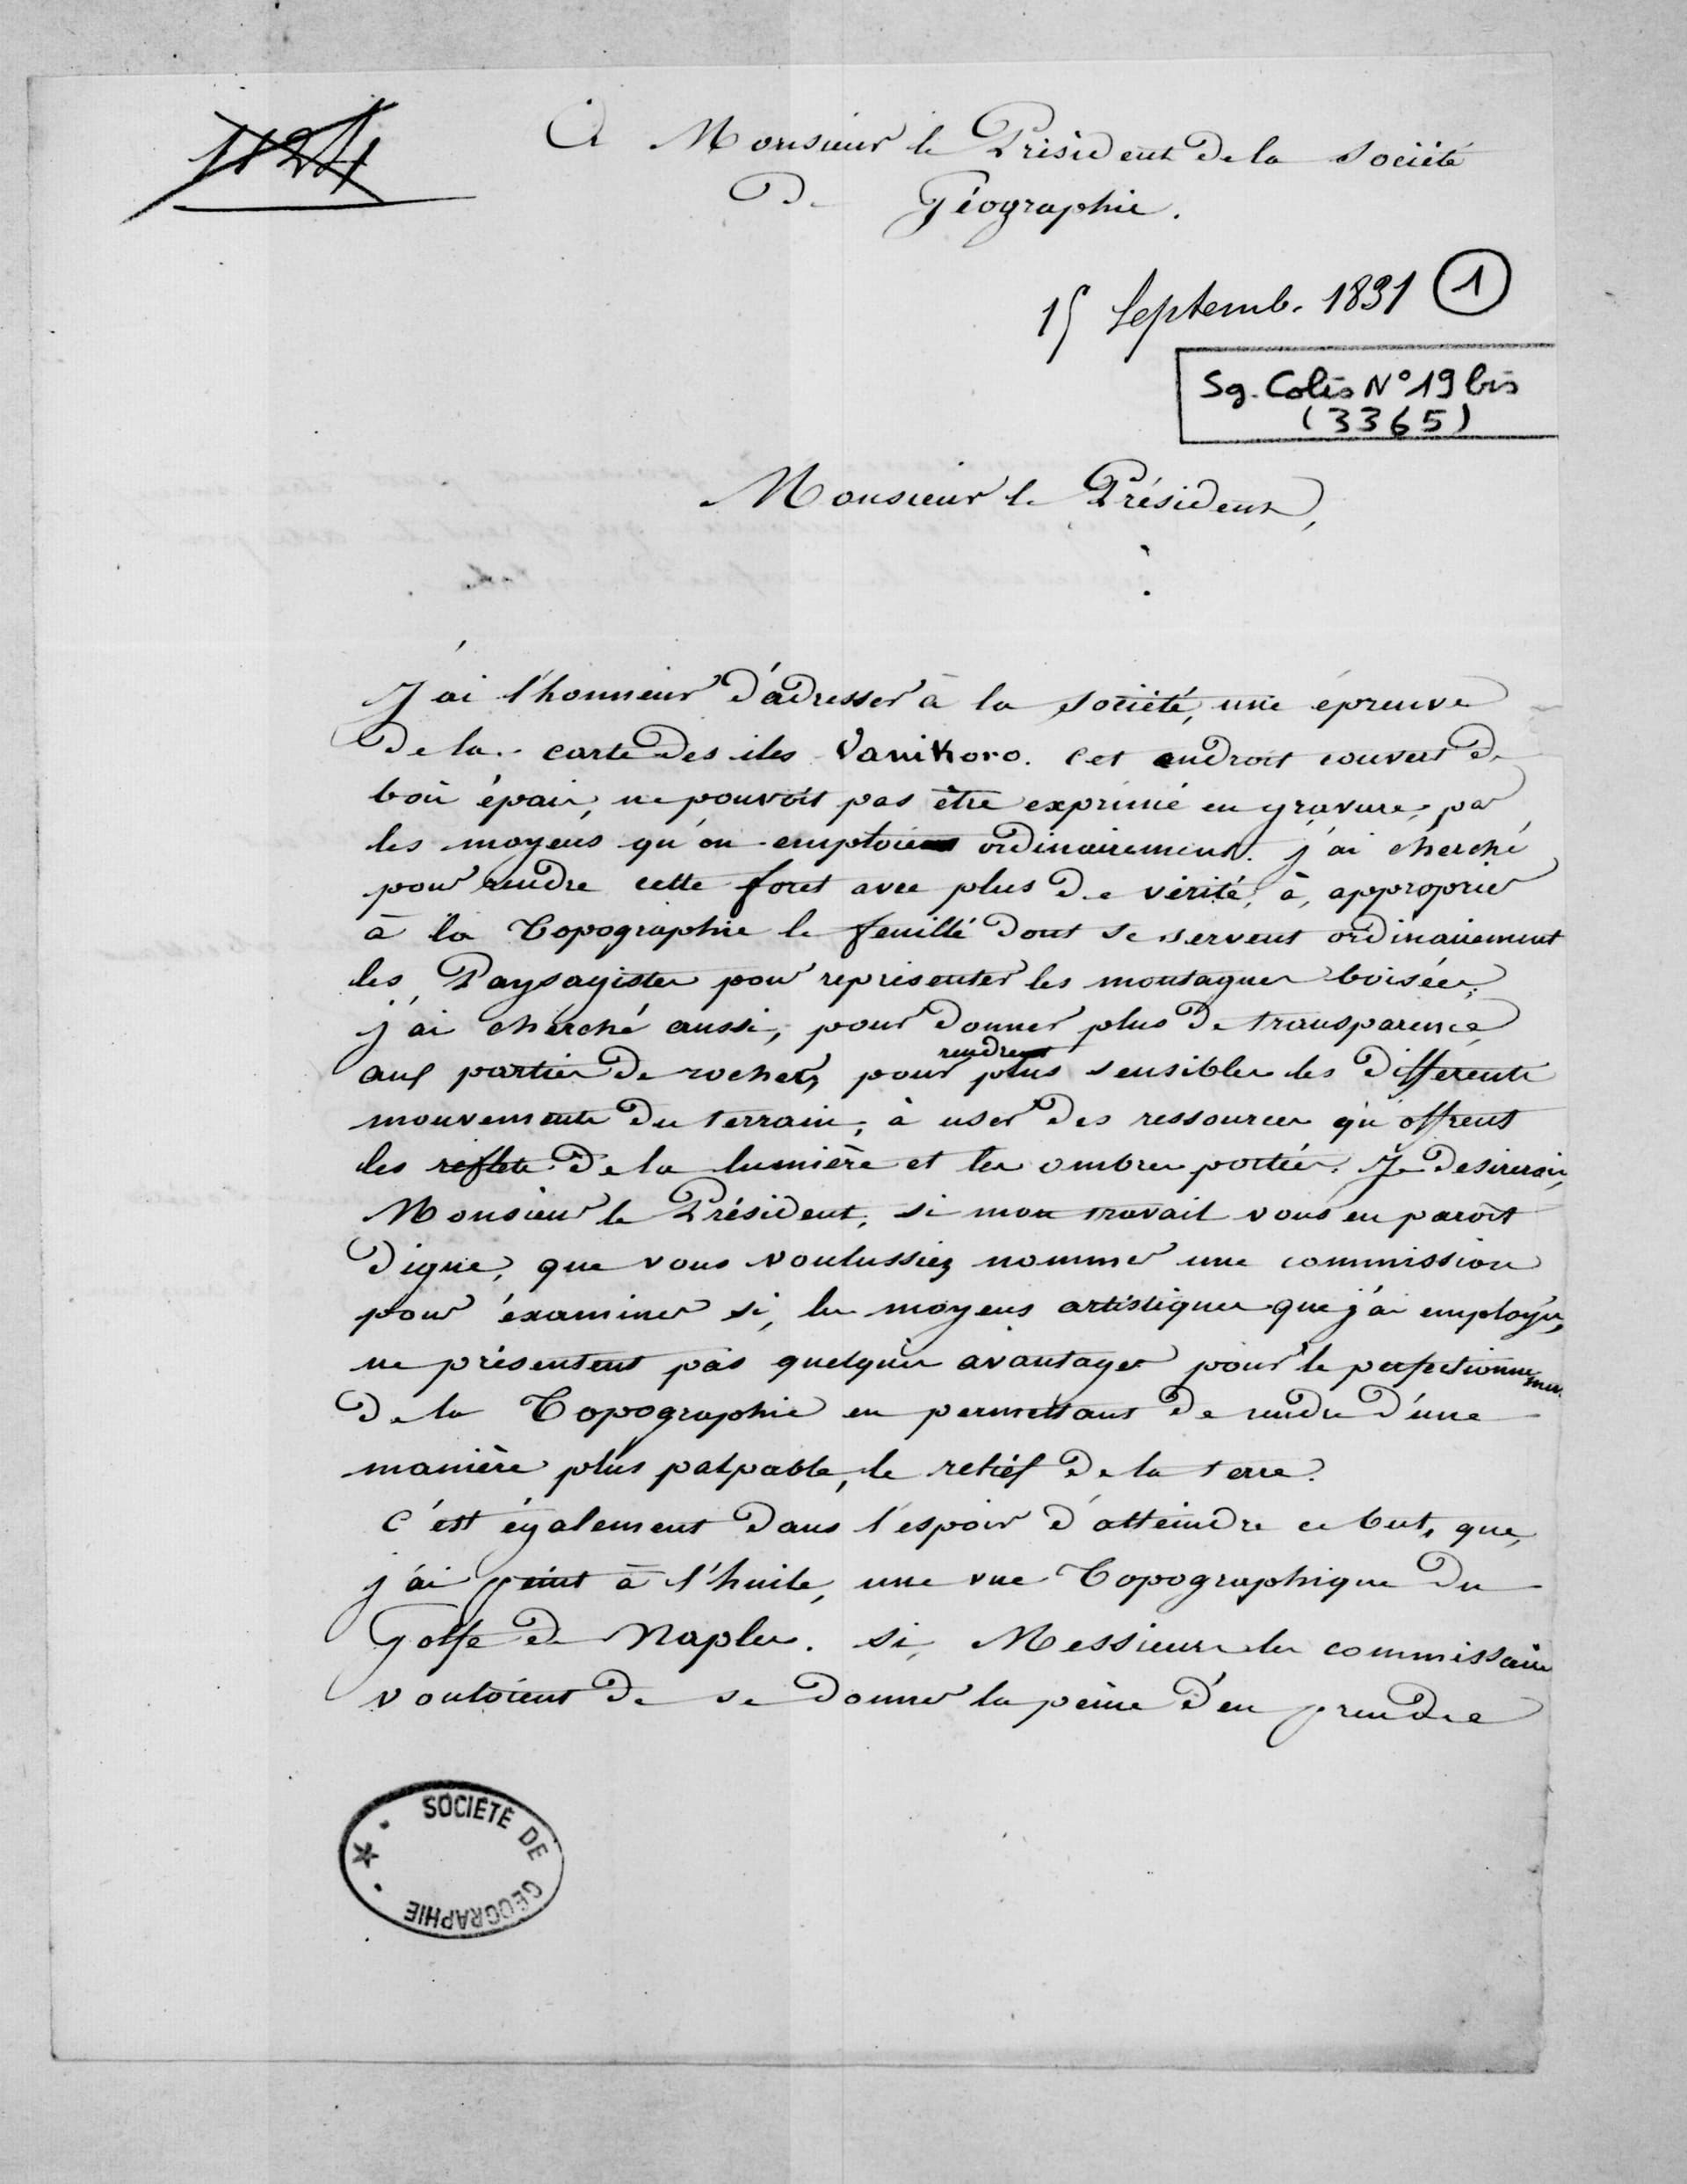 1124
A Monsieur le Président de la Société
De Géographie.
15 Septemb. 1831 1
Sg. Colis N° 19 bis
(3365)
Monsieur le Président,
J'ai l'honneur d'adresser à la société, une épreuve
De la carte des iles Vanikoro. Cet endroit couvert de
bois épais, ne pouvoit pas être exprimé en gravure, par
les moyens qu'on emploie ordinairement. j'ai cherché
pour rendre cette foret avec plus de vérité, à, approprier
à la Topographie le feuillé dont se servent ordinairement
les Paysagistes pour représenter les montagnes boisées;
j'ai cherché aussi, pour donner plus de transparence
aux parties de rochers, pour rendre plus sensibles les différents
mouvements du terrain, à user des ressources qu'offrent
les reflets de la lumière et les ombres portées. Je desirerais,
Monsieur le Président, si mon travail vous en paroît
Digne, que vous voulussiez nommer une commission
pour éxaminer si, les moyens artistiques que j'ai employés,
ne présentent pas quelques avantages pour le perfectionnement
De la Topographie en permettant de rendre d'une
manière plus palpable, le relief de la terre.
C'est également dans l'espoir d'atteindre ce but, que,
j'ai peint à l'huile, une vue Topographique du
Golfe de Naples. si, Messieurs les commissaires
vouloient de se donner la peine d'en prendre
SOCIETE DE
GEOGRAPHIE